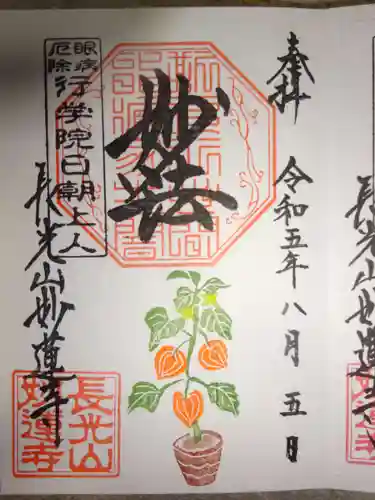 奉拝
令和五年八月五日
妙法
眼病
厄除
行学院日朝上人
長光山妙蓮寺
長光山
妙蓮寺
長光山妙蓮寺